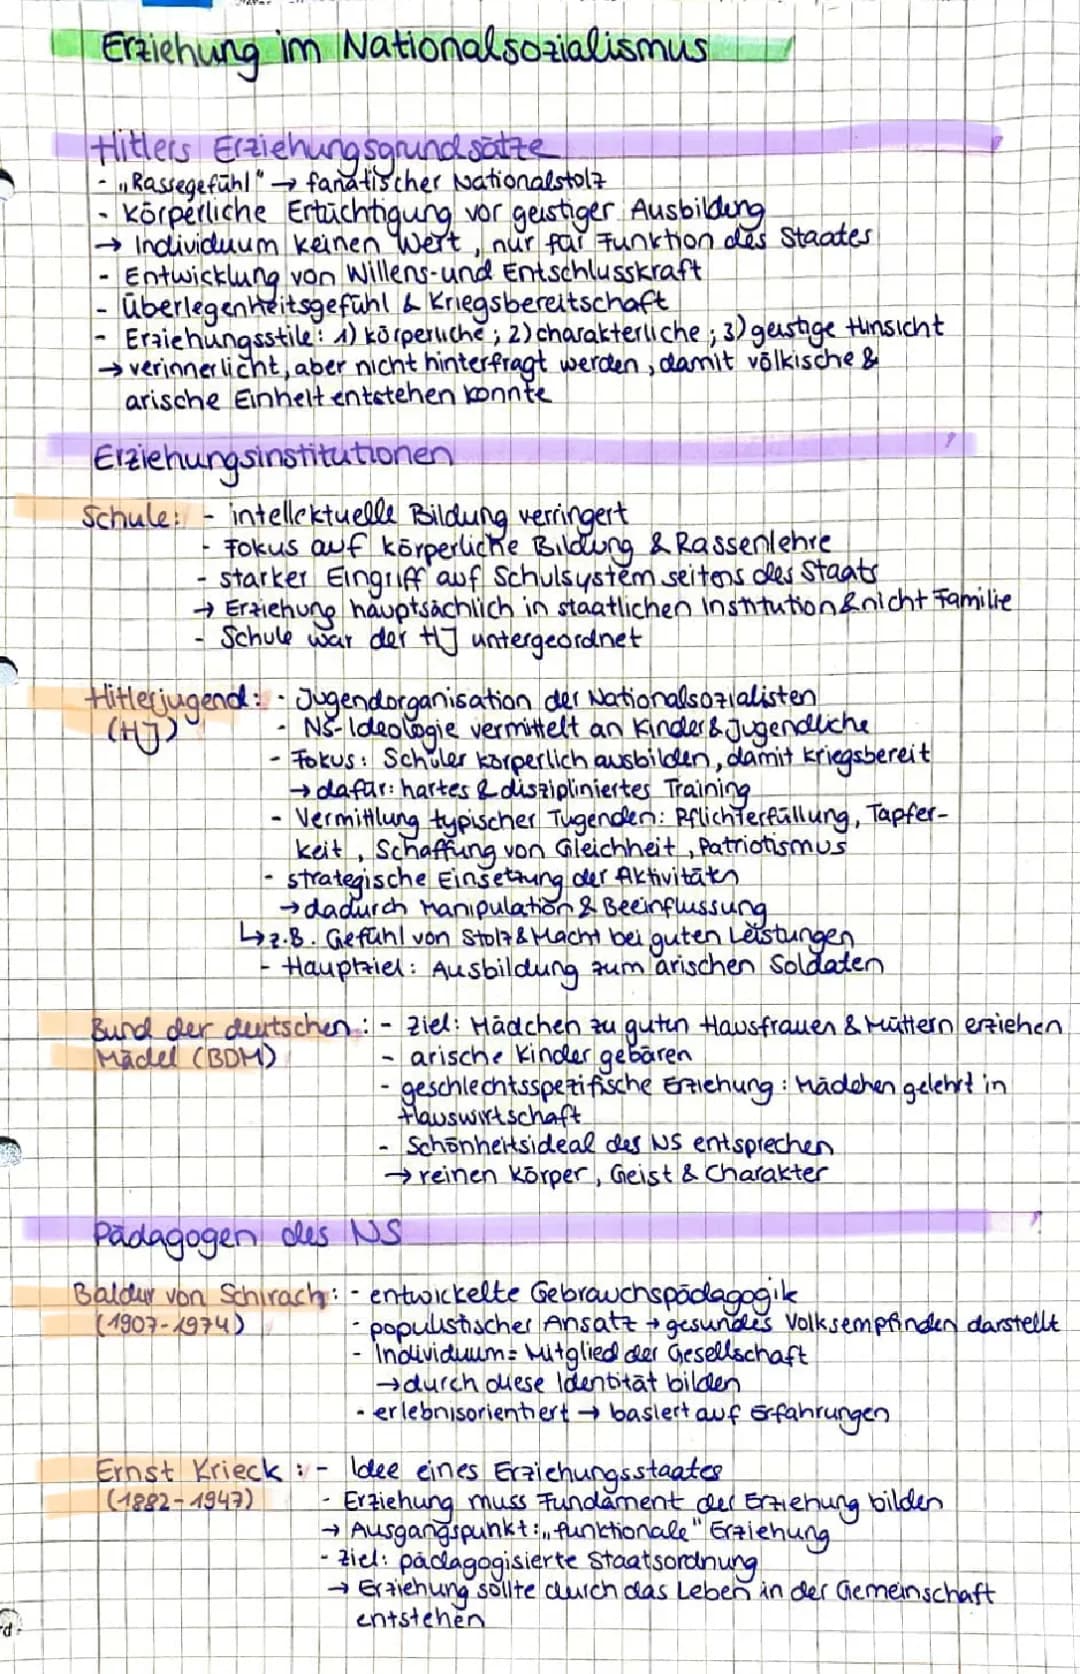 Erziehung im Nationalsozialismus
Hitlers Erziehungsgrundsätze
- „Rassegefühl" → fanatischer Nationalstolz
- körperliche Ertüchtigung vor geistiger Ausbildung
→ Individuum keinen Wert, nur für Funktion des Staates
- Entwicklung von Willens- und Entschlusskraft
- Überlegenheitsgefühl & Kriegsbereitschaft
- Erziehungsstile: 1) körperliche; 2) charakterliche; 3) geistige Hinsicht
→ verinnerlicht, aber nicht hinterfragt werden, damit völkische &
arische Einheit entstehen konnte
Erziehungsinstitutionen
Schule: - intellektuelle Bildung verringert
- Fokus auf körperliche Bildung & Rassenlehre
- starker Eingriff auf Schulsystem seitens des Staats
→ Erziehung hauptsächlich in staatlichen Institution & nicht Familie
- Schule war der HJ untergeordnet
Hitlerjugend: - Jugendorganisation der Nationalsozialisten
(HJ) - NS-Ideologie vermittelt an Kinder & Jugendliche
- Fokus: Schüler körperlich ausbilden, damit kriegsbereit
→ dafür: hartes & diszipliniertes Training
- Vermittlung typischer Tugenden: Pflichterfüllung, Tapfer-
keit, Schaffung von Gleichheit, Patriotismus
- strategische Einsetzung der Aktivitätn
→ dadurch Manipulation & Beeinflussung
↳ z.B. Gefühl von Stolz & Macht bei guten Leistungen
- Hauptziel: Ausbildung zum arischen Soldaten
Bund der deutschen: - Ziel: Mädchen zu guten Hausfrauen & Müttern erziehen
Mädel (BDM) - arische Kinder gebären
- geschlechtsspezifische Erziehung: Mädchen gelehrt in
Hauswirtschaft
- Schönheitsideal des NS entsprechen
→ reinen Körper, Geist & Charakter
Pädagogen des NS
Baldur von Schirach: - entwickelte Gebrauchspädagogik
(1907-1974) - populistischer Ansatz → gesundes Volksempfinden darstellt
- Individuum = Mitglied der Gesellschaft
→ durch diese Identität bilden
- erlebnisorientiert → basiert auf Erfahrungen
Ernst Krieck: - Idee eines Erziehungsstaates
(1882-1947) - Erziehung muss Fundament der Erziehung bilden
→ Ausgangspunkt: „funktionale" Erziehung
- Ziel: pädagogisierte Staatsordnung
→ Erziehung sollte durch das Leben in der Gemeinschaft
entstehen